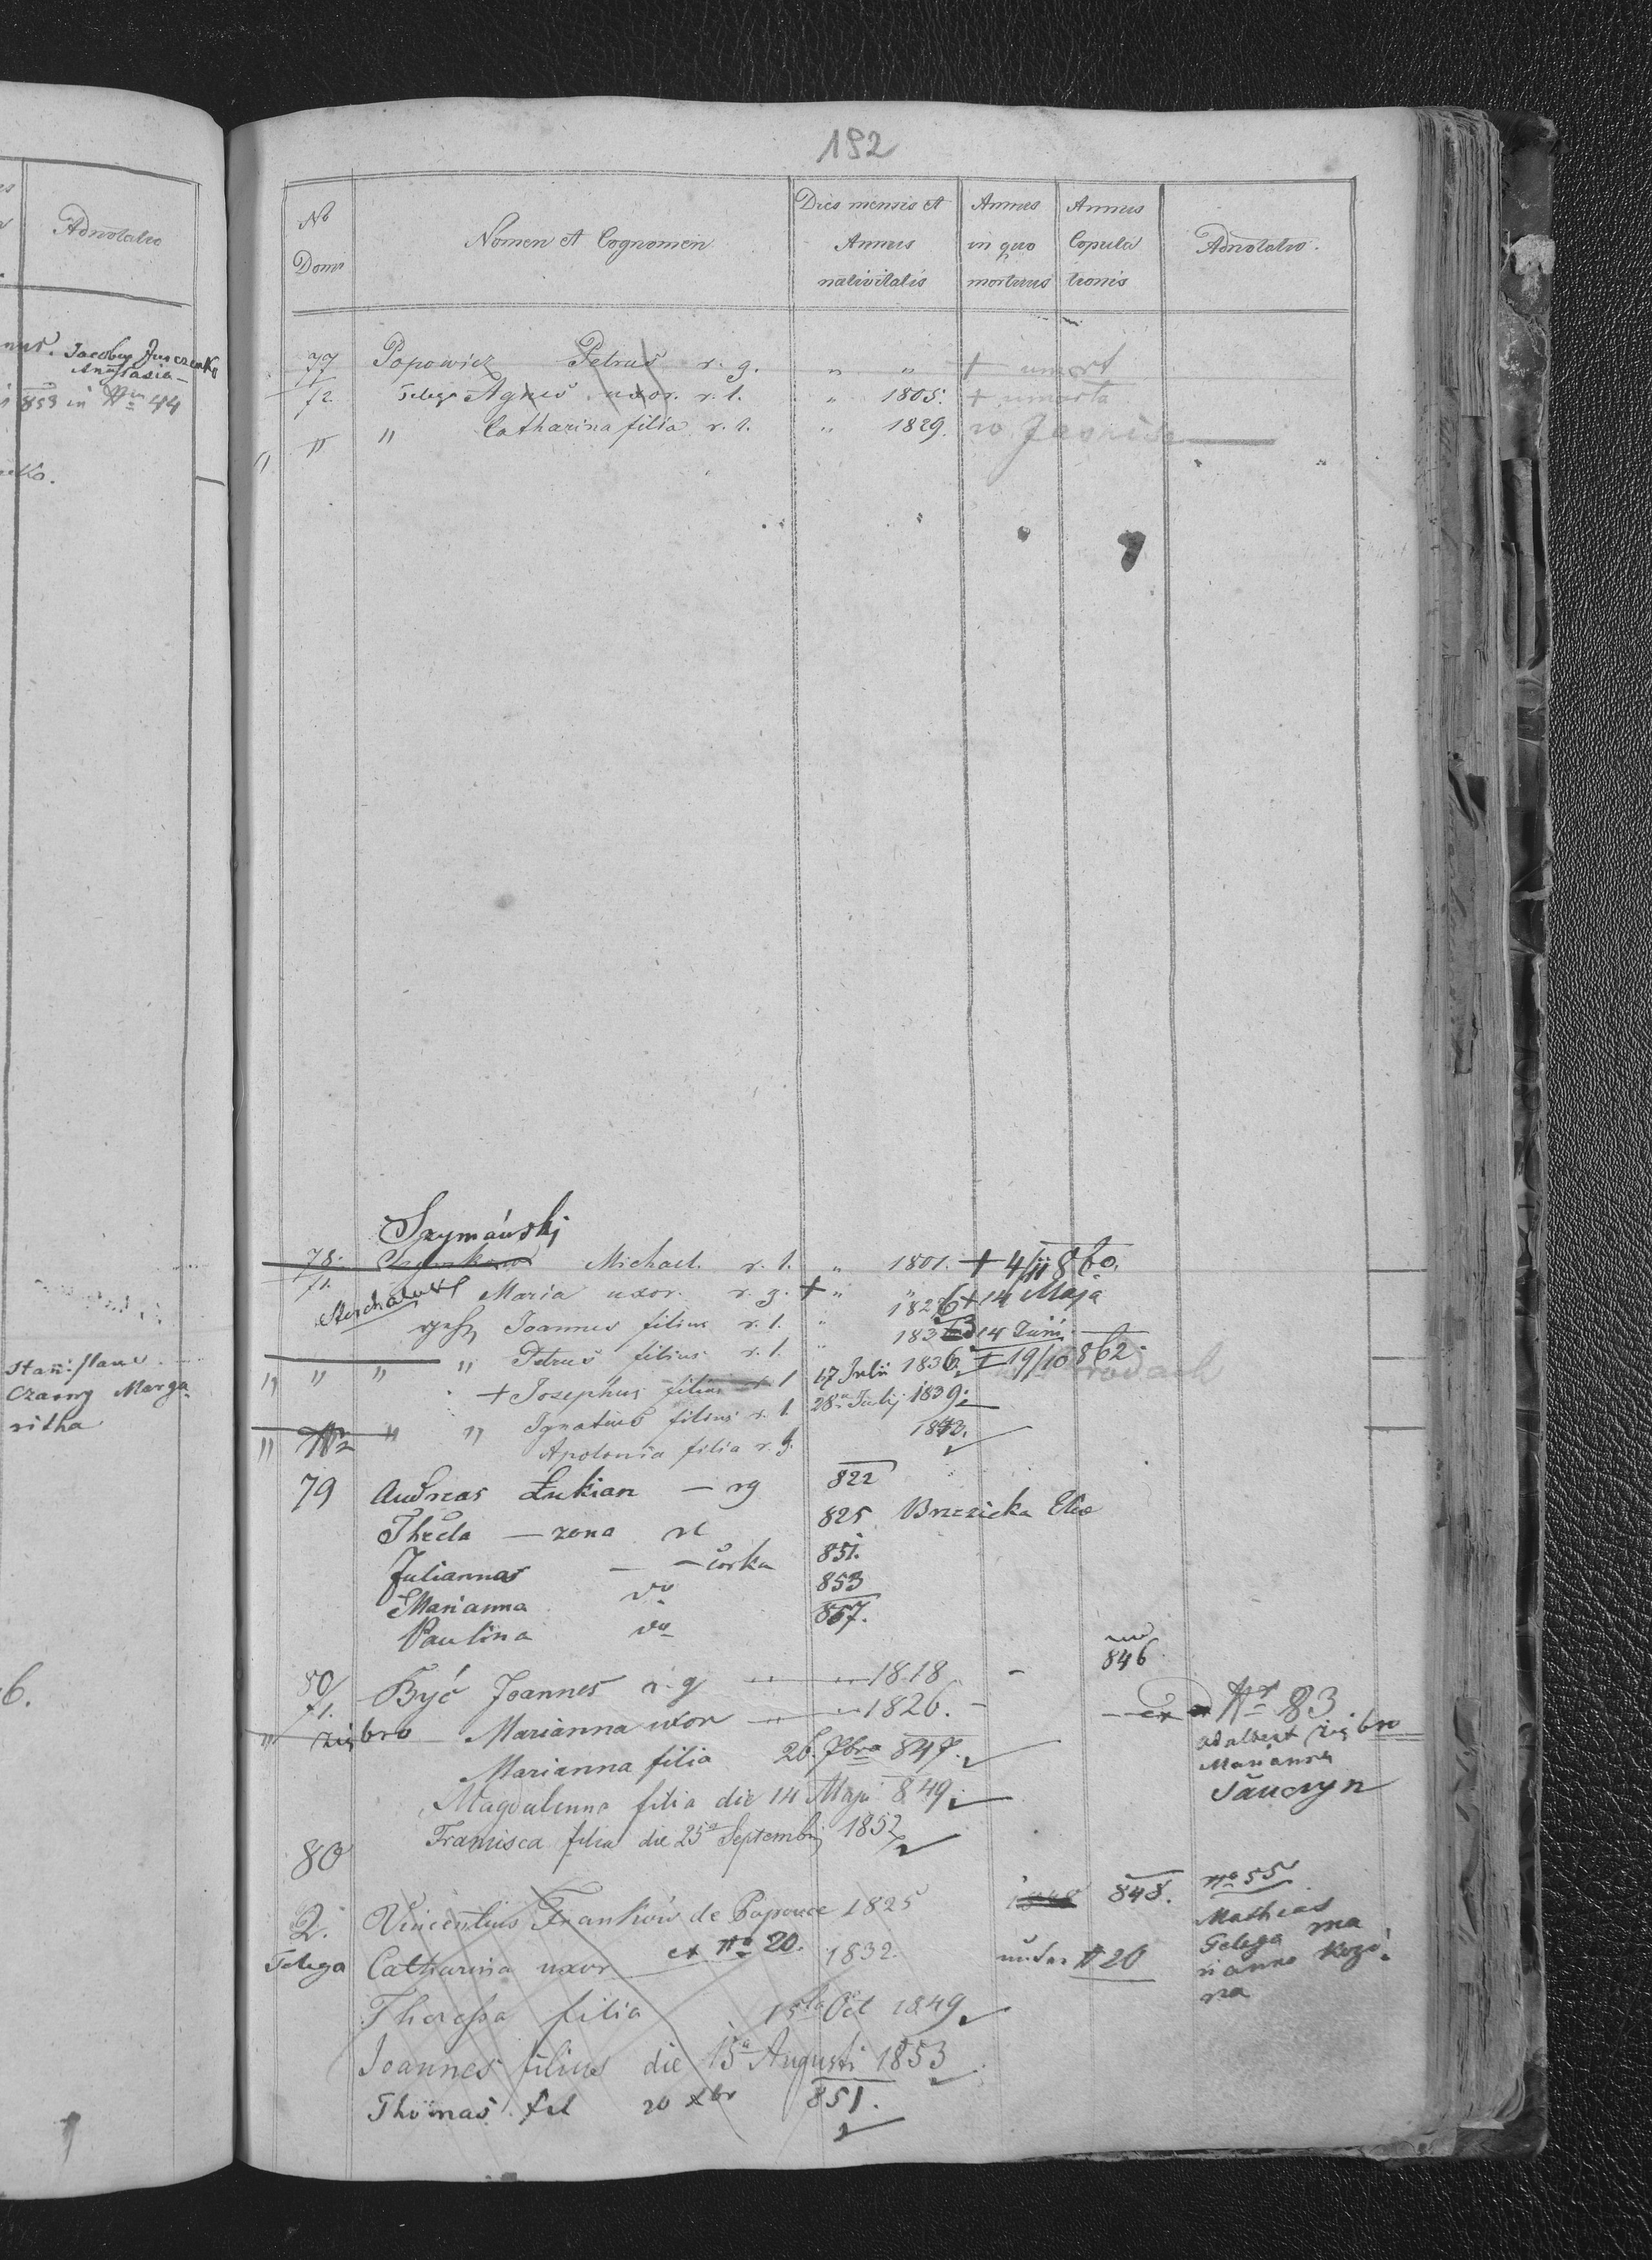 Adnotatio
Jacobus Jurczenko
Anastasia
853 in Nro 44
Stanislaus
Czarny Marga
ritha
192
No Domi
Nomen et Cognomen
Dies mensis et Annus nativitatis
Annus in quo mortuus
Annus Copulationis
Adnotatio.
77/1 Popowicz Petrus r. g. " " + umarł
/2. Telega Agnes uxor. r. l. " 1805. + umarła
" " Catharina filia r. l. " 1829. w
Szymański
78./1. Michael. r. l. " 1801. + 4/11 860.
Maria uxor. r. g. + " " 1826 + 14 Maja
Joannes filius r. l. " 183 14 Junii
" " " " Petrus filius r. l. 17 Julii 1836. 19/10 862
+ Josephus filius r. l 28a Julij 1839.
" " Ignatius filius r. l. 1842.
" Apolonia filia r. g.
79 Andreas Łukian — rg 822
Thecla — zona rl 825 Brzezicka
Juliannas — córka 851.
Marianna do 853
Paulina do 857.
846
80/1. Być Joannes r. g " " 1818 -
" zigbro Marianna uxor " " 1826. - Nr 83
Marianna filia 26. 7bra 847. Adalbert zigbro
Marianna
Magdalenna filia die 14 Maji 849.
Francisca filia die 25a Septembr 1852
80
2. Vincentius Franków de Popowce 1825 1848 848. No 55
Mathias
Telega Catharina uxor ex No 20. 1832. # 20 Telega ma
rianna Kozi
na
Theressa filia 15ta Oct 1849
Joannes filius die 15a Augusti 1853
Thomas fil 20 xbr 851.